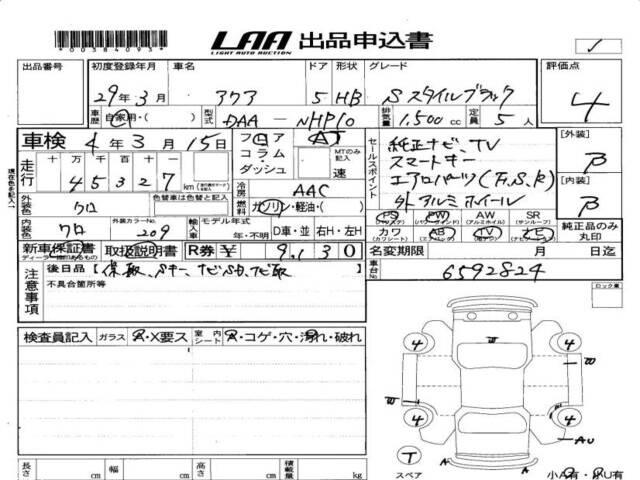 *00384093*
LAA 出品申込書
LIGHT AUTO AUCTION
出品番号 初度登録年月 車名 ドア 形状 グレード 評価点
29年3月 アクア 5 HB Sスタイルブラック 4
車歴 自家用・( ) 型式 DAA-NHP10 排気量 1,500cc 定員 5人
車検 4年3月15日
フロア AT
コラム MTのみ記入
ダッシュ 速
セールスポイント
純正ナビ、TV
スマートキー
エアロパーツ(F.S.R)
外アルミホイール
[外装]
B
[内装]
B
現在色を記入
走行 十万 万 千 百 十 一
4 5 3 2 7 km
冷房 AAC
外装色 クロ 色替車は色替と記入
燃料 ガソリン・軽油・( )
内装色 クロ 外装カラーNo. 209
輸入車 モデル年式 年・不明 D車・並 右H・左H
PS PW AW SR
(パワステ) (パワーウィンドウ) (アルミホイル) (サンルーフ)
カワ AB TV ナビ
(カワシート) (エアバッグ) (テレビ) (ナビ)
純正品のみ丸印
新車保証書 取扱説明書 R券 ¥ 9,130
ディーラー印のあるもの
名変期限 月 日迄
注意事項
後日品【保取、Sキー、ナビSD、ナビ取
不具合箇所等
車台No. 6592824
ロック車
検査員記入 ガラス A・X要ス 室内シート A・コゲ・穴・汚れ・破れ
4 4
W
W
W
4 4
AU
T
スペア
A A
小A有・小U有
長さ cm 幅 cm 高さ cm 積載量 kg